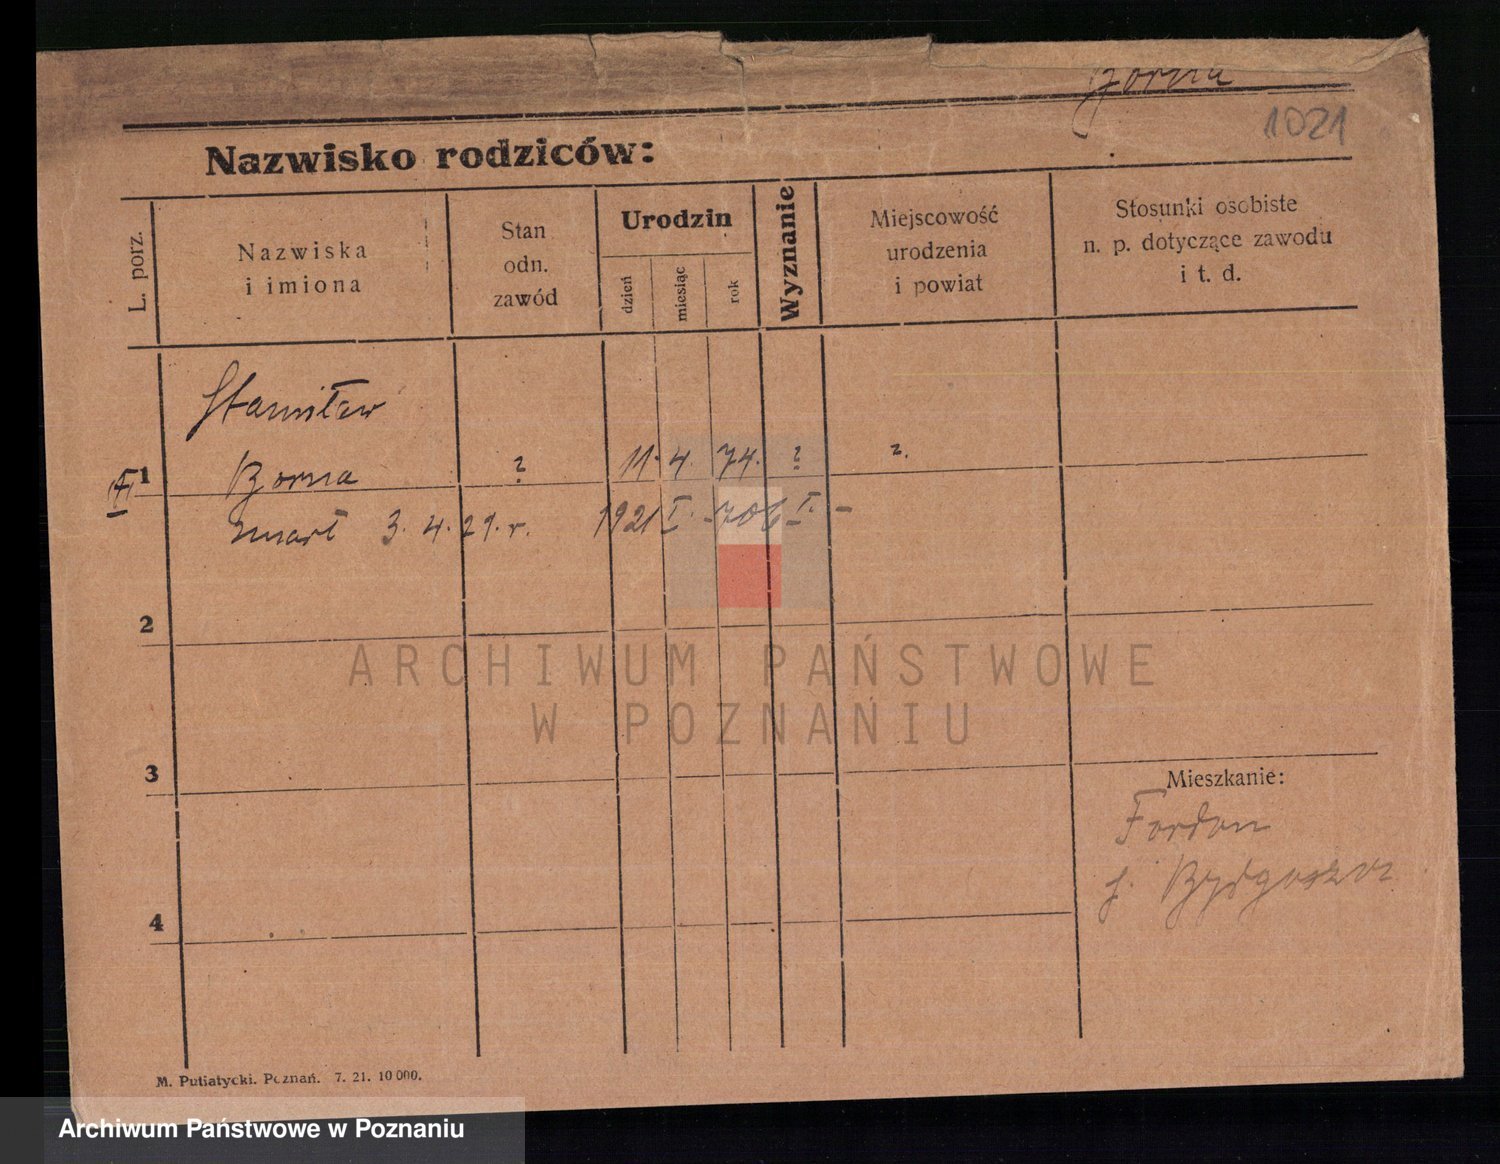 Borna
1021
Nazwisko rodziców:
L. porz.
Nazwiska
i imiona
Stan
odn.
zawód
Urodzin
dzień
miesiąc
rok
Wyznanie
Miejscowość
urodzenia
i powiat
Stosunki osobiste
n. p. dotyczące zawodu
i t. d.
Stanisław
1 Borna ? 11. 4. 74. ? ?.
zmarł 3. 4. 21. r. 1921 I. - 706 I. -
2
ARCHIWUM PAŃSTWOWE
W POZNANIU
3
Mieszkanie:
Fordon
p. Bydgoszcz
4
M. Putiatycki. Poznań. 7. 21. 10 000.
Archiwum Państwowe w Poznaniu